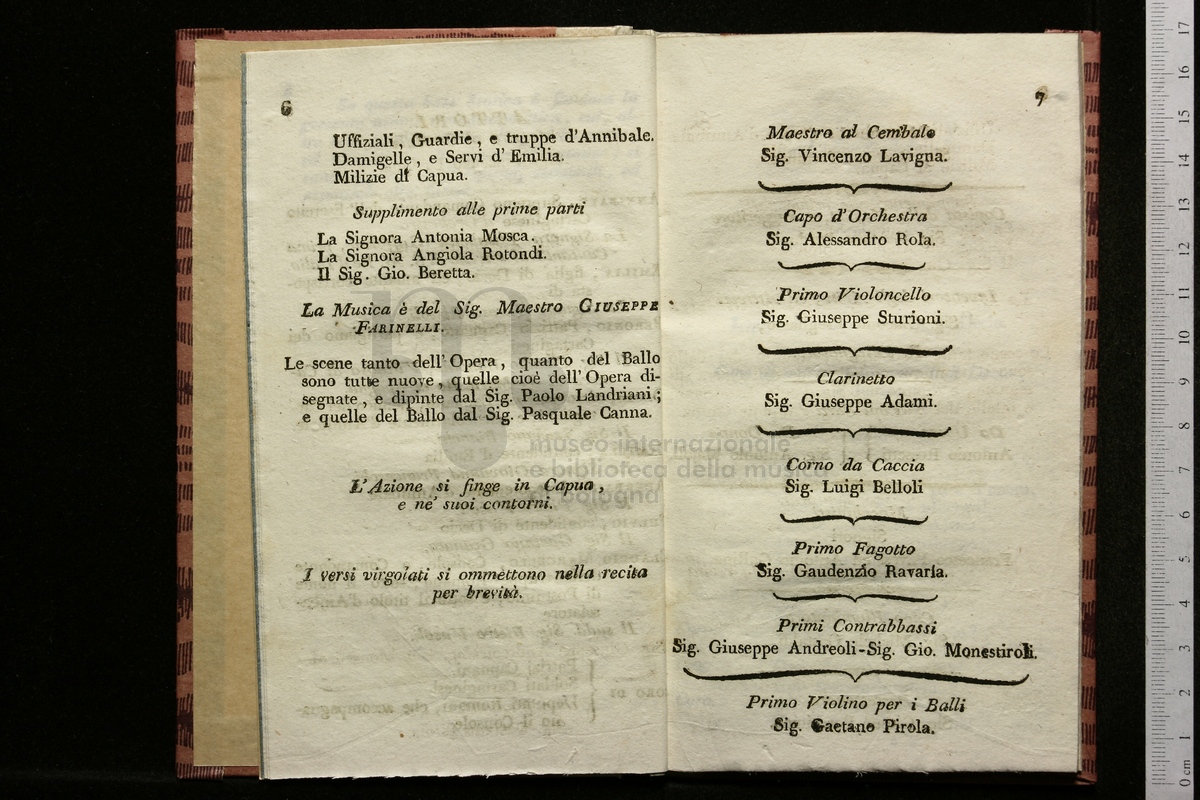 6
Uffiziali, Guardie, e truppe d'Annibale.
Damigelle, e Servi d'Emilia.
Milizie di Capua.
Supplimento alle prime parti
La Signora Antonia Mosca.
La Signora Angiola Rotondi.
Il Sig. Gio. Beretta.
La Musica è del Sig. Maestro GIUSEPPE
FARINELLI.
Le scene tanto dell'Opera, quanto del Ballo
sono tutte nuove, quelle cioè dell'Opera di-
segnate, e dipinte dal Sig. Paolo Landriani;
e quelle del Ballo dal Sig. Pasquale Canna.
L'Azione si finge in Capua,
e ne' suoi contorni.
I versi virgolati si ommettono nella recita
per brevità.
7
Maestro al Cembalo
Sig. Vincenzo Lavigna.
Capo d'Orchestra
Sig. Alessandro Rola.
Primo Violoncello
Sig. Giuseppe Sturioni.
Clarinetto
Sig. Giuseppe Adami.
Corno da Caccia
Sig. Luigi Belloli
Primo Fagotto
Sig. Gaudenzio Ravaria.
Primi Contrabbassi
Sig. Giuseppe Andreoli-Sig. Gio. Monestiroli.
Primo Violino per i Balli
Sig. Gaetano Pirola.
museo internazionale
e biblioteca della musica
di bologna
0 cm 1 2 3 4 5 6 7 8 9 10 11 12 13 14 15 16 17